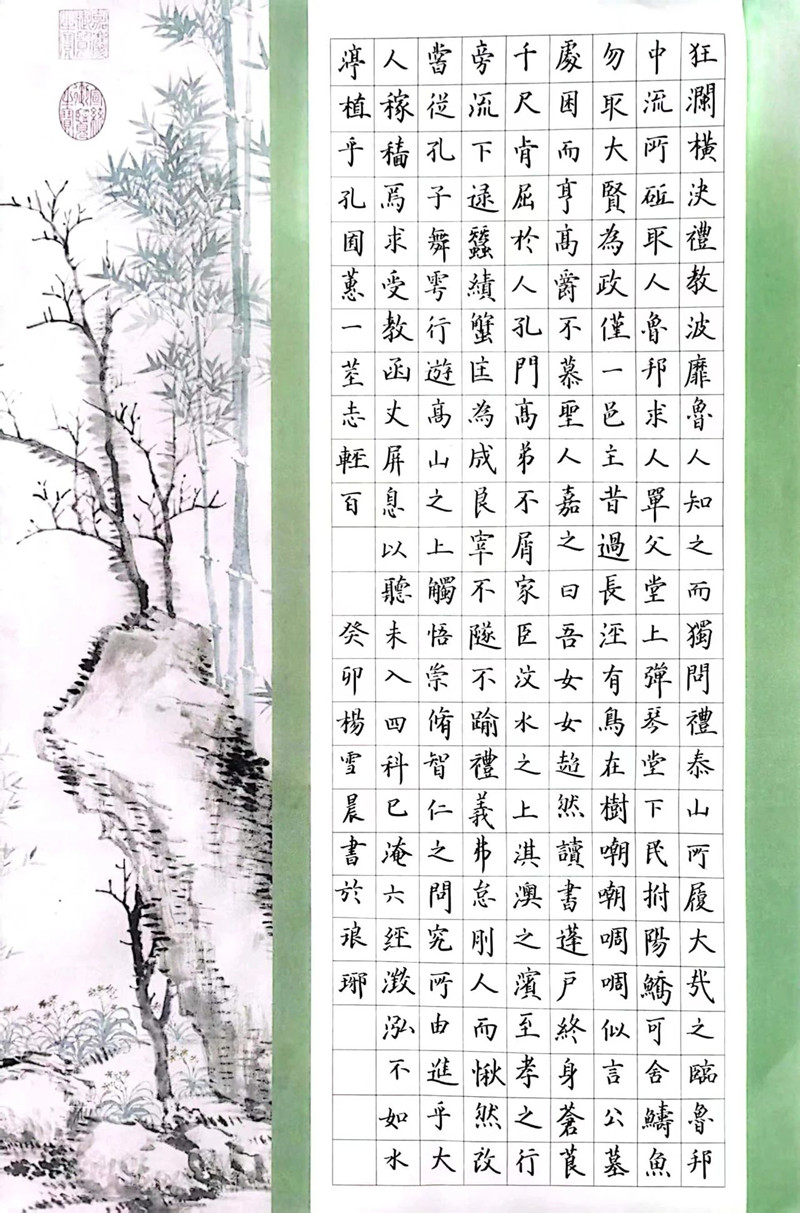 狂瀾橫決禮教波靡魯人知之而獨問禮泰山所履大哉之臨魯邦
中流所砥取人魯邦求人單父堂上彈琴堂下民拊陽鱎可舍魚
勿取大賢為政僅一邑主昔過長涇有鳥在樹嘲嘲啁啁似言公墓
處困而亨高爵不慕聖人嘉之曰吾女女超然讀書蓬戶終身蒼莨
千尺肯屈於人孔門高弟不屑家臣汶水之上淇澳之濱至孝之行
旁流下逯蠶績蟹匡為成良宰不隧不踰禮義弗怠剛人而愀然改
嘗從孔子舞雩行遊高山之上觸悟崇脩智仁之問究所由進乎大
人稼穡焉求受教函丈屏息以聽未入四科已淹六經澂泓不如水
渟植乎孔囿蕙一莖志輕百
癸卯楊雪晨書於琅琊